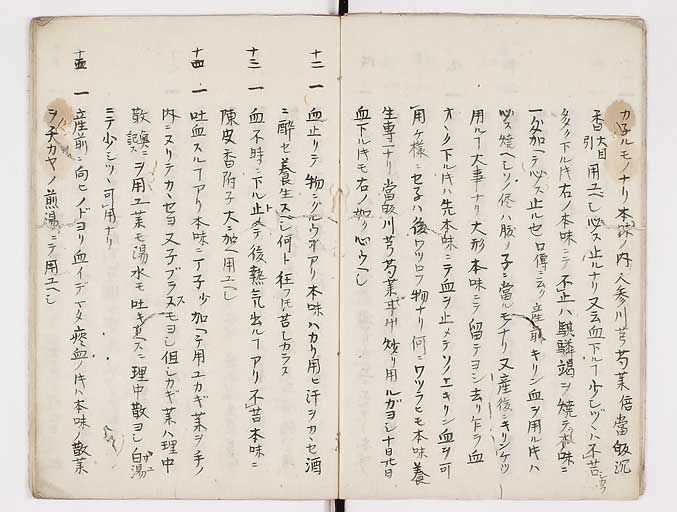 カ子ルモノナリ本味ノ内人参川芎芍薬倍當皈沉
香大目引用ユベし必ス止ルナリ又云血下ルヿ少しヅヽハ不苦
多ク下ル片右ノ本味ニテ不止ハ騏驎竭ヲ焼テ本味ニ
一分加ヘテ必ス止ルセ口傳ニ云ク産前キリン血ヲ用ル片ハ
必ス焼ヘしソノ侭ハ腹ノ子ニ當ルモノナリ又産後ニキリンケツ
用ルヿ大事ナリ大形本味ニテ留テヨシ去リ乍ラ血
オヽク下ル片ハ先本味ニテ血ヲ止メテソノエキリン血ヲ可
用ケ様ニセ子ハ後ワツロフ物ナリ何ニワツラヒモ本味養
生専一ナリ當皈川芎芍薬炒リ用ルガヨし十日廿日
血下ル片モ右ノ如ク心ウヘし
十二 一 血止リテ物クルウ事アリ本味ハカリ用ヒ汗ヲカヽセ酒
ニ酔セ養生スベし何ト狂フ共苦しカラス
十三 一 血不時ニ下ル止テ後熱気出ルヿアリ不苦本味ニ
陳皮香附子大ニ加ヘ用ユベし
十四 一 吐血スルヿアリ本味ニ丁子少加ヘテ用ユカギ薬ヲ手ノ
内ニヌリテカヽセヨ又子ブラスモヨし但しカギ薬ハ理中
散ニヲ用ユ薬モ湯水モ吐キ理中散ヨし白湯
ニテ少シツヽ可用ナリ
十五 一 産前ニ向ヒノドヨリ血イデ又痰血ノ片ハ本味ノ散薬
ヲ天カヤノ煎湯ニテ用ユベし